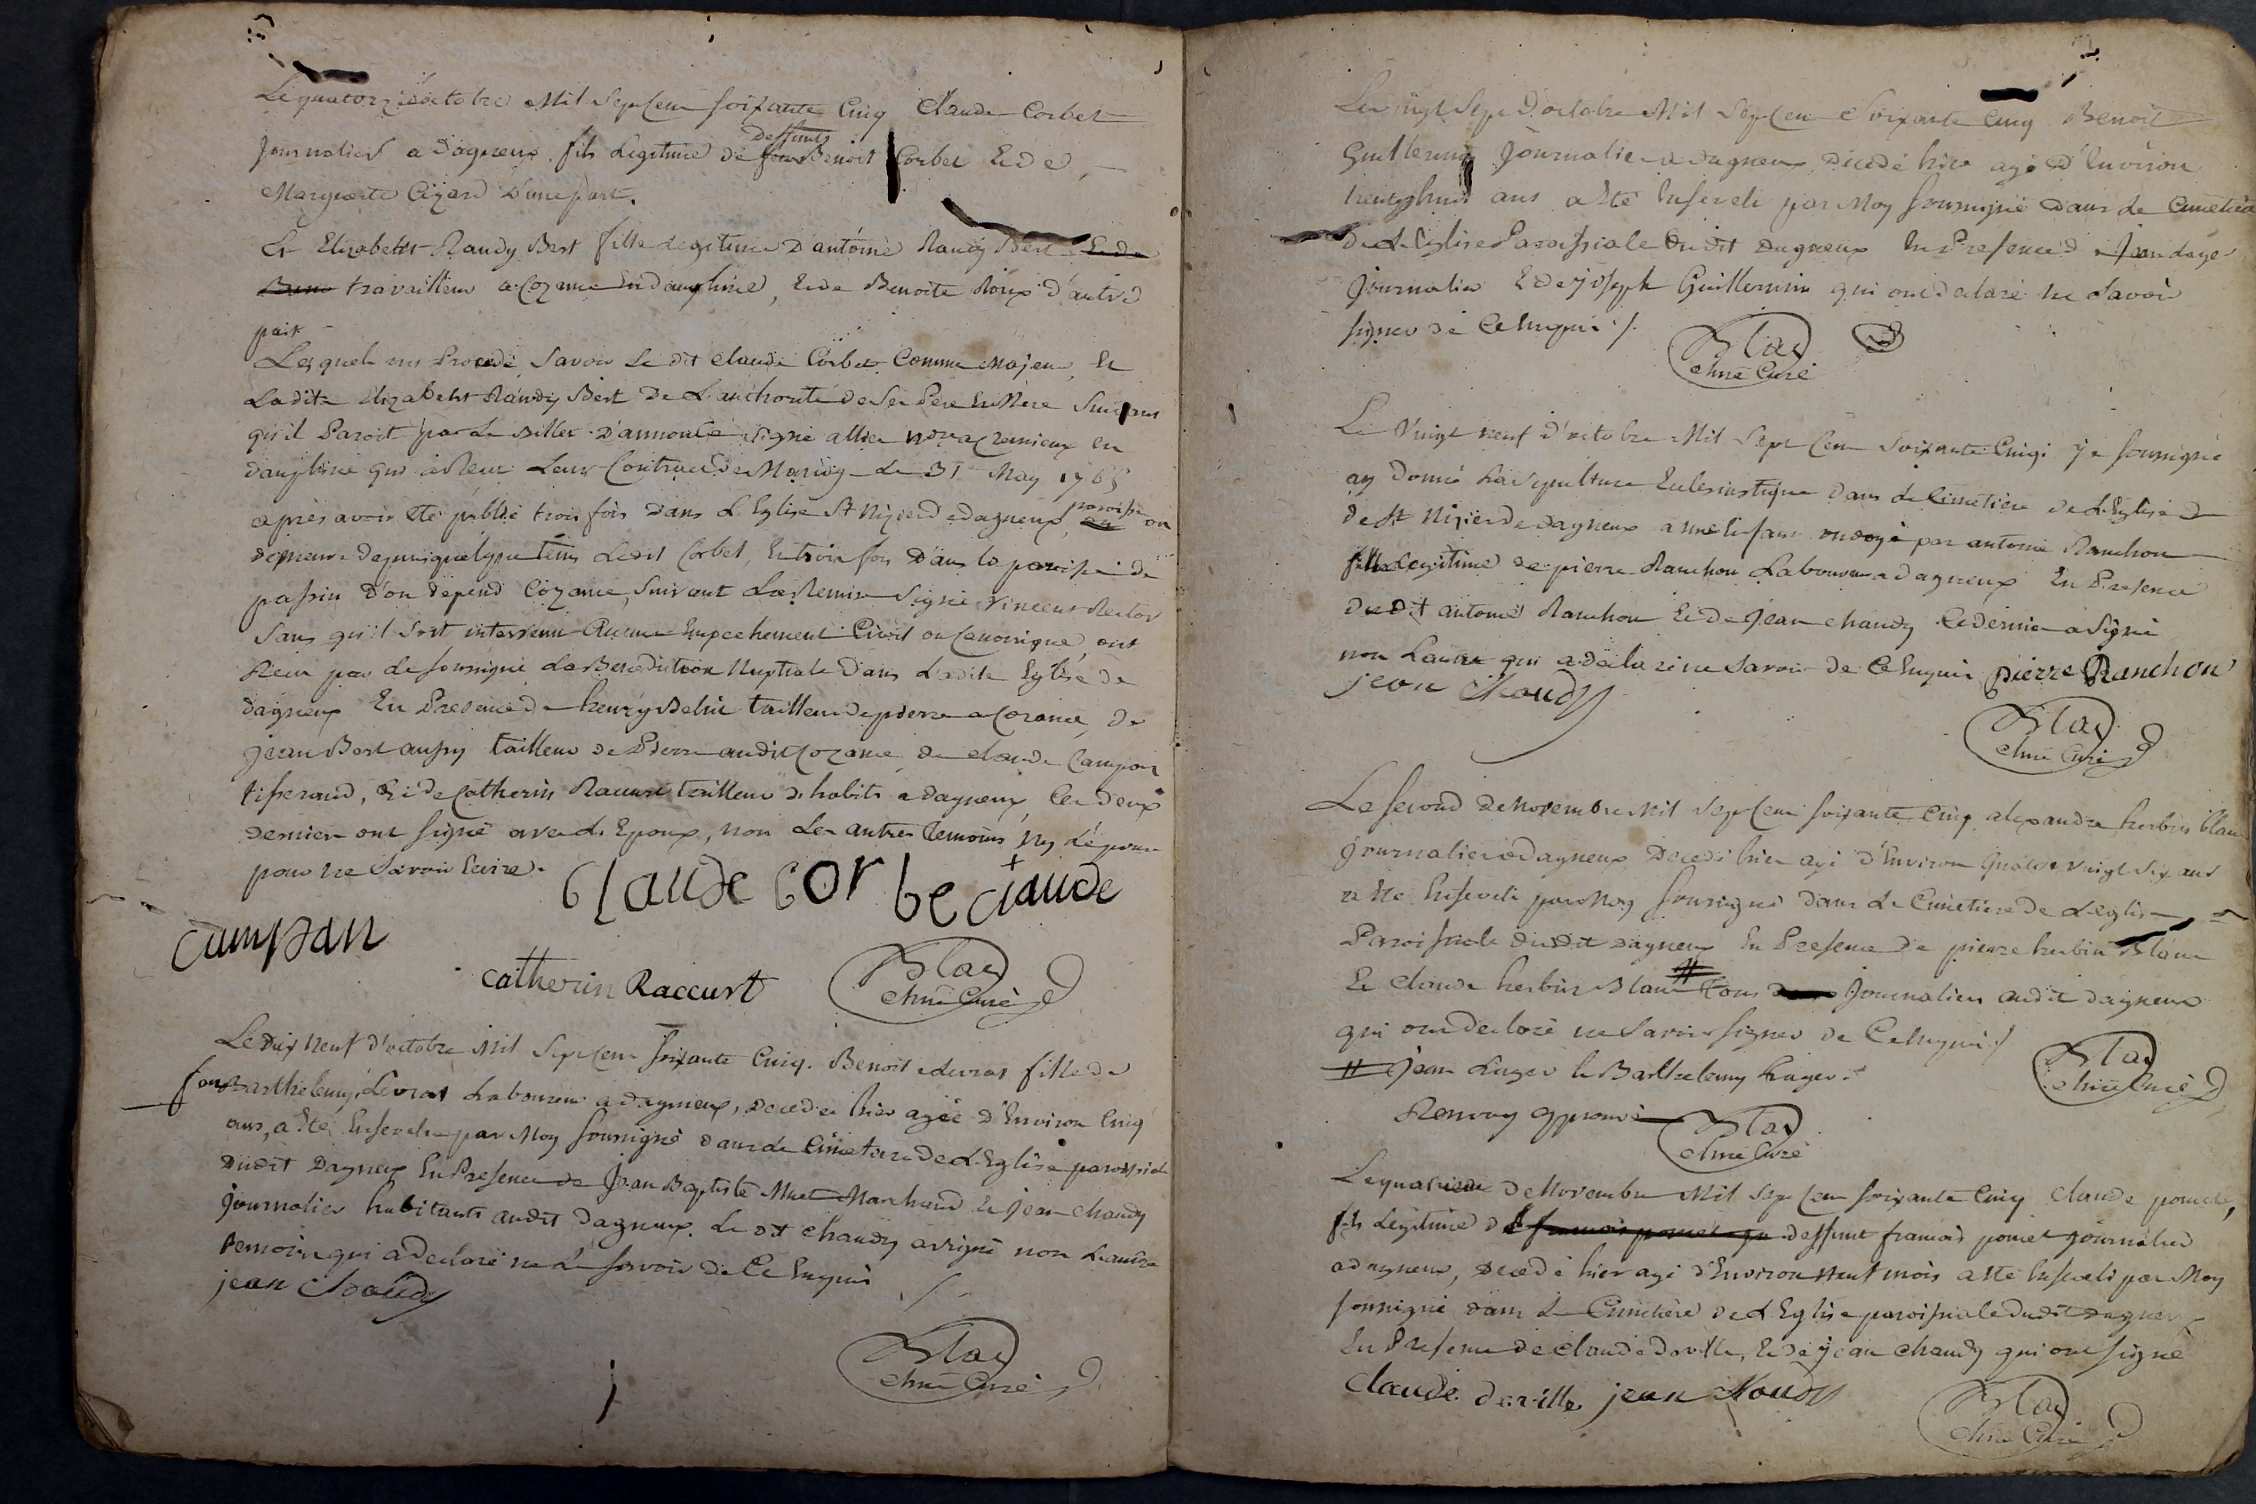 Le quatorze octobre Mil Sept Cent soixante Cinq Claude Corbet
journalier a dagneux fils Legitime de deffunts Benoit Corbet Et de
Marguerite Cizard D'une part.
Et Elizabeth Randy Bert fille Legitime D'antoine Randy Bert
travailleur a Cozance En dauphiné, Et de Benoite Roux d'autre
part
Lesquels ont Procedé, Savoir Le dit Claude Corbet Comme Majeur, Et
La dite Elizabeth Randy Bert De L'authorité de Ses Pere Et Mere Suivant
qu'il Paroit par Le Billet D'annonce Signé allier cremieux en
dauphiné qui a Receu Leur Contract de Mariage Le 31 May 1765
apres avoir Eté publié trois fois Dans L'Eglise St Nizier de dagneux, paroisse ou
demeure depuis quelque tems Ledit Corbet, Et trois fois Dans la paroisse de
passin D'ou depend Cozance, Suivant La Remise Signé Vincent Rector
Sans qu'il Soit intervenu Aucun Empechement Civil ou Canonique, ont
Receu par Le soussigné La Benediction Nuptiale Dans Ladite Eglise de
dagneux En Presence de henry Belin tailleur de pierre a Cozance, De
jean Bert aussy tailleur de Pierre audit Cozance, De claude Campan
tisserand, Et de Catherin Raccurt tailleur d'habits a dagneux, Les deux
derniers ont signé avec L'Epoux, non Les autres temoins Ny L'épouse
pour ne Savoir Ecrire.
Claude Corbe claude
campan
catherin Raccurt
Blac
chne Curé
Le Dix Neuf d'octobre Mil Sept Cent soixante Cinq. Benoite Levrat fille de
feu Barthelemy Levrat Laboureur a dagneux, Decedée hier agée d'Environ Cinq
ans, a Eté Ensevelie par Moy soussigné dans Le Cimetiere de L'Eglise paroissiale
Dudit Dagneux En Presence de Jean Baptiste Muet Marchand Et jean chaudy
journalier habitants audit Dagneux. Le dit Chaudy a signé non L'autre
temoin qui a declaré ne Le savoir de Ce Enquis
jean Chaudy
Blac
chne Curé
Le vingt Sept D'octobre Mil Sept Cent Soixante Cinq Benoit
Guillermin Journalier a dagneux, Decedé hier agé d'Environ
trente huit ans a Eté Enseveli par Moy soussigné Dans Le Cimetiere
de L'Eglise Paroissiale Dudit dagneux En Presence de
Journalier Et de joseph Guillermin qui ont declaré ne Savoir
signer de Ce Enquis /.
Blac
chne Curé
Le Vingt neuf d'octobre Mil Sept Cent Soixante Cinq je soussigné
ay donné La Sepulture Eclesiastique Dans Le Cimetiere de L'Eglise
de St Nizier de dagneux a un Enfant ondoyé par antoine Ranchon
fille Legitime de pierre Ranchon Laboureur a dagneux En Presence
Dudit antoine Ranchon Et de Jean chaudy Ce dernier a Signé
non L'autre qui a declaré ne Savoir de Ce Enquis pierre Ranchon
jean Chaudy
Blac
chne Curé
Le second de Novembre Mil Sept Cent soixante Cinq alexandre herbin blanc
journalier a dagneux Decedé hier agé d'Environ quatre vingt Six ans
a Eté Enseveli par Moy soussigné dans Le Cimetiere de L'eglise
Paroissiale dudit dagneux En Presence de pierre herbin Blanc
Et claude herbin Blanc # tous Journaliers audit dagneux
qui ont declaré ne Savoir signer de Ce Enquis /
# jean Luger Et Barthelemy Luger
Renvoy approuvé
Blac
chne Curé
Blac
chne Curé
Le quatrieme de Novembre Mil Sept Cent soixante Cinq Claude pomet,
fils Legitime de deffunt francois pomet journalier
a dagneux, Decedé hier agé d'Environ Neuf mois a Eté Enseveli par Moy
soussigné dans Le Cimetière de L'Eglise paroissiale dudit dagneux
En Presence de claude deville, Et de jean chaudy qui ont signé
Claude deville jean Chaudy
Blac
chne Curé